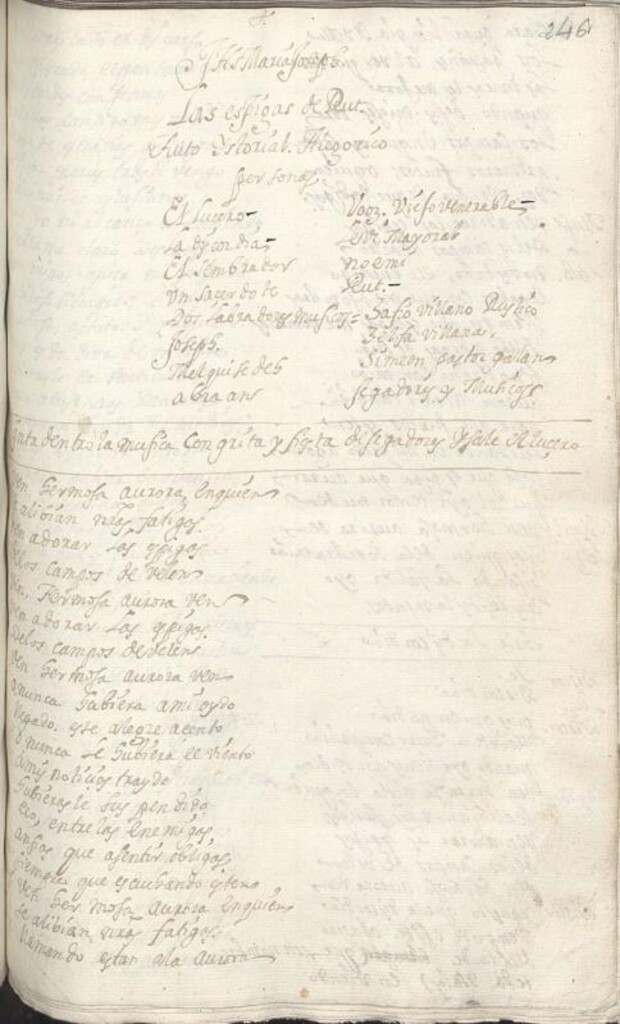 246
JHS Maria Joseph
Las espigas de Rut.
Auto Ystorial. Alegorico
personas
El lucero
la discordia
El sembrador
Un sacerdote
Dos labradores musicos
Joseph.
Melquisedeh
abraan
Vooz. Viejo venerable
Levi Mayoral
noemi
Rut.
Safio villano Rustico
Zelfa villana.
Simeon pastor galan
segadores y Musicos
Canta dentro la musica con grita y fiesta de segadores y sale el lucero
Ven hermosa aurora, en quien
se alibian nras fatigas.
Ven adorar las espigas
de los campos de velen
Ven. Hermosa aurora ven
Ven adorar las espigas.
de los campos de velen
Ven hermosa aurora ven
o nunca hubiera a mi oydo
llegado. este alegre acento
o nunca le hubiera el viento
a mis noticias trayde
hubierasle suspendido
eco, entre las enemigas
ansias que a sentir obligas
siempre que escuchando esten
Ven hermosa aurora en quien
se alibian nras fatigas
llamando estan a la aurora